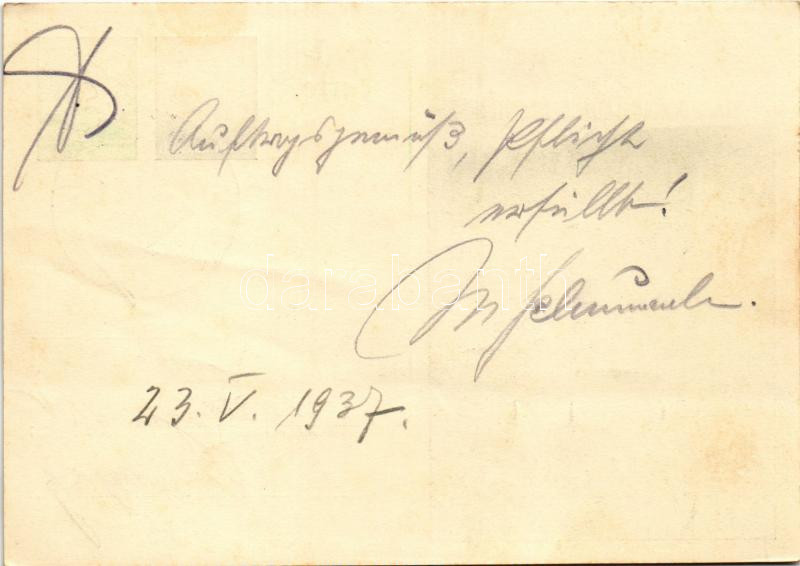 Auftragsgemäß, Pflicht
erfüllt!
23. V. 1937.
darabanth